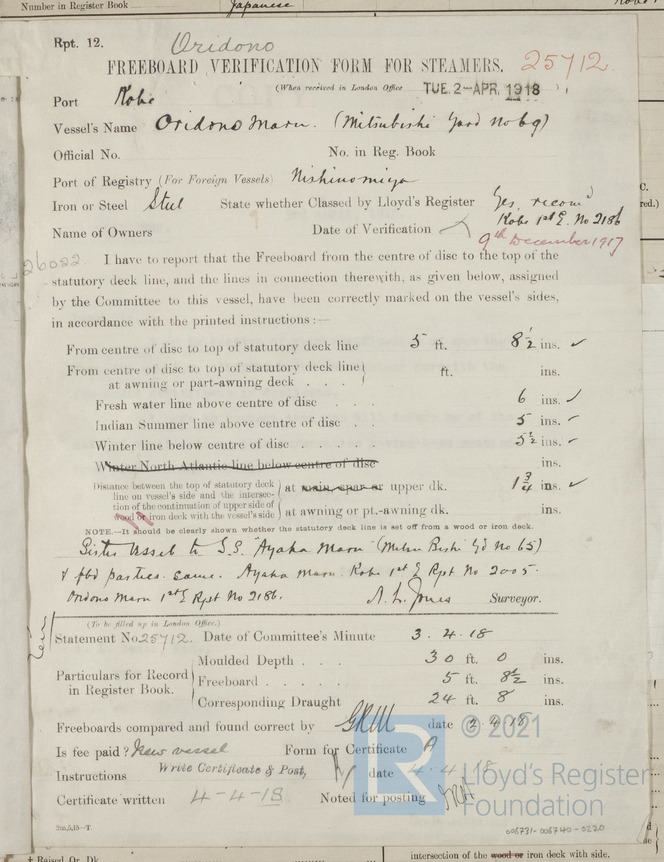 Number in Register Book
Japanese
Rpt. 12.
Oridono
FREEBOARD VERIFICATION FORM FOR STEAMERS.
25712
(When received in London Office
TUE. 2-APR. 1918
Port Kobe
Vessel's Name Oridono Maru. (Mitsubishi Yard No 69)
Official No. No. in Reg. Book
Port of Registry (For Foreign Vessels) Nishinomiya
Iron or Steel Steel State whether Classed by Lloyd's Register Yes, recomd
Kobe 1st E. No 2186
Name of Owners Date of Verification
9th December 1917
26022
I have to report that the Freeboard from the centre of disc to the top of the
statutory deck line, and the lines in connection therewith, as given below, assigned
by the Committee to this vessel, have been correctly marked on the vessel's sides,
in accordance with the printed instructions :—
From centre of disc to top of statutory deck line 5 ft. 8½ ins. ✓
From centre of disc to top of statutory deck line
at awning or part-awning deck . . . ft. ins.
Fresh water line above centre of disc . . . 6 ins. ✓
Indian Summer line above centre of disc . . 5 ins.
Winter line below centre of disc . . . . . 5½ ins.
Winter North Atlantic line below centre of disc ins.
Distance between the top of statutory deck
line on vessel's side and the intersec-
tion of the continuation of upper side of
wood or iron deck with the vessel's side
at main, spar or upper dk. 1¾ ins. ✓
at awning or pt.-awning dk. ins.
NOTE.—It should be clearly shown whether the statutory deck line is set off from a wood or iron deck.
Sister Vessel to S.S. "Ayaha Maru" (Mitsu Bishi Yd No 65)
& fbd parties. same. Ayaha Maru. Kobe 1st E Rpt No 2005.
Oridono Maru 1st E Rpt No 2186.
A. L. Jones Surveyor.
(To be filled up in London Office.)
Statement No 25712. Date of Committee's Minute 3. 4. 18
Particulars for Record
in Register Book.
Moulded Depth . . . 30 ft. 0 ins.
Freeboard . . . . . 5 ft. 8½ ins.
Corresponding Draught 24 ft. 8 ins.
Freeboards compared and found correct by date 2. 4. 18
Is fee paid? New vessel Form for Certificate A
Instructions Write Certificate & Post, date 4. 4. 18
Certificate written 4-4-18 Noted for posting
2m,5,15—T.
006731-006740-0220
© 2021
Lloyd's Register
Foundation
LR
† Raised Qr. Dk.
intersection of the wood or iron deck with side.